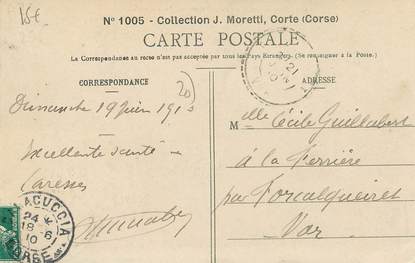 15€
N° 1005 - Collection J. Moretti, Corte (Corse)
CARTE POSTALE
La Correspondance au recto n'est pas acceptée par tous les Pays Étrangers. (Se renseigner à la Poste.)
CORRESPONDANCE
ADRESSE
20
21
Dimanche 19 Juin 1910
Excellente santé —
Caresses
Melle Cécile Guillabert
à la Ferrière
par Forcalqueiret
Var
ACUCCIA
24
18 -6
10
ORSE